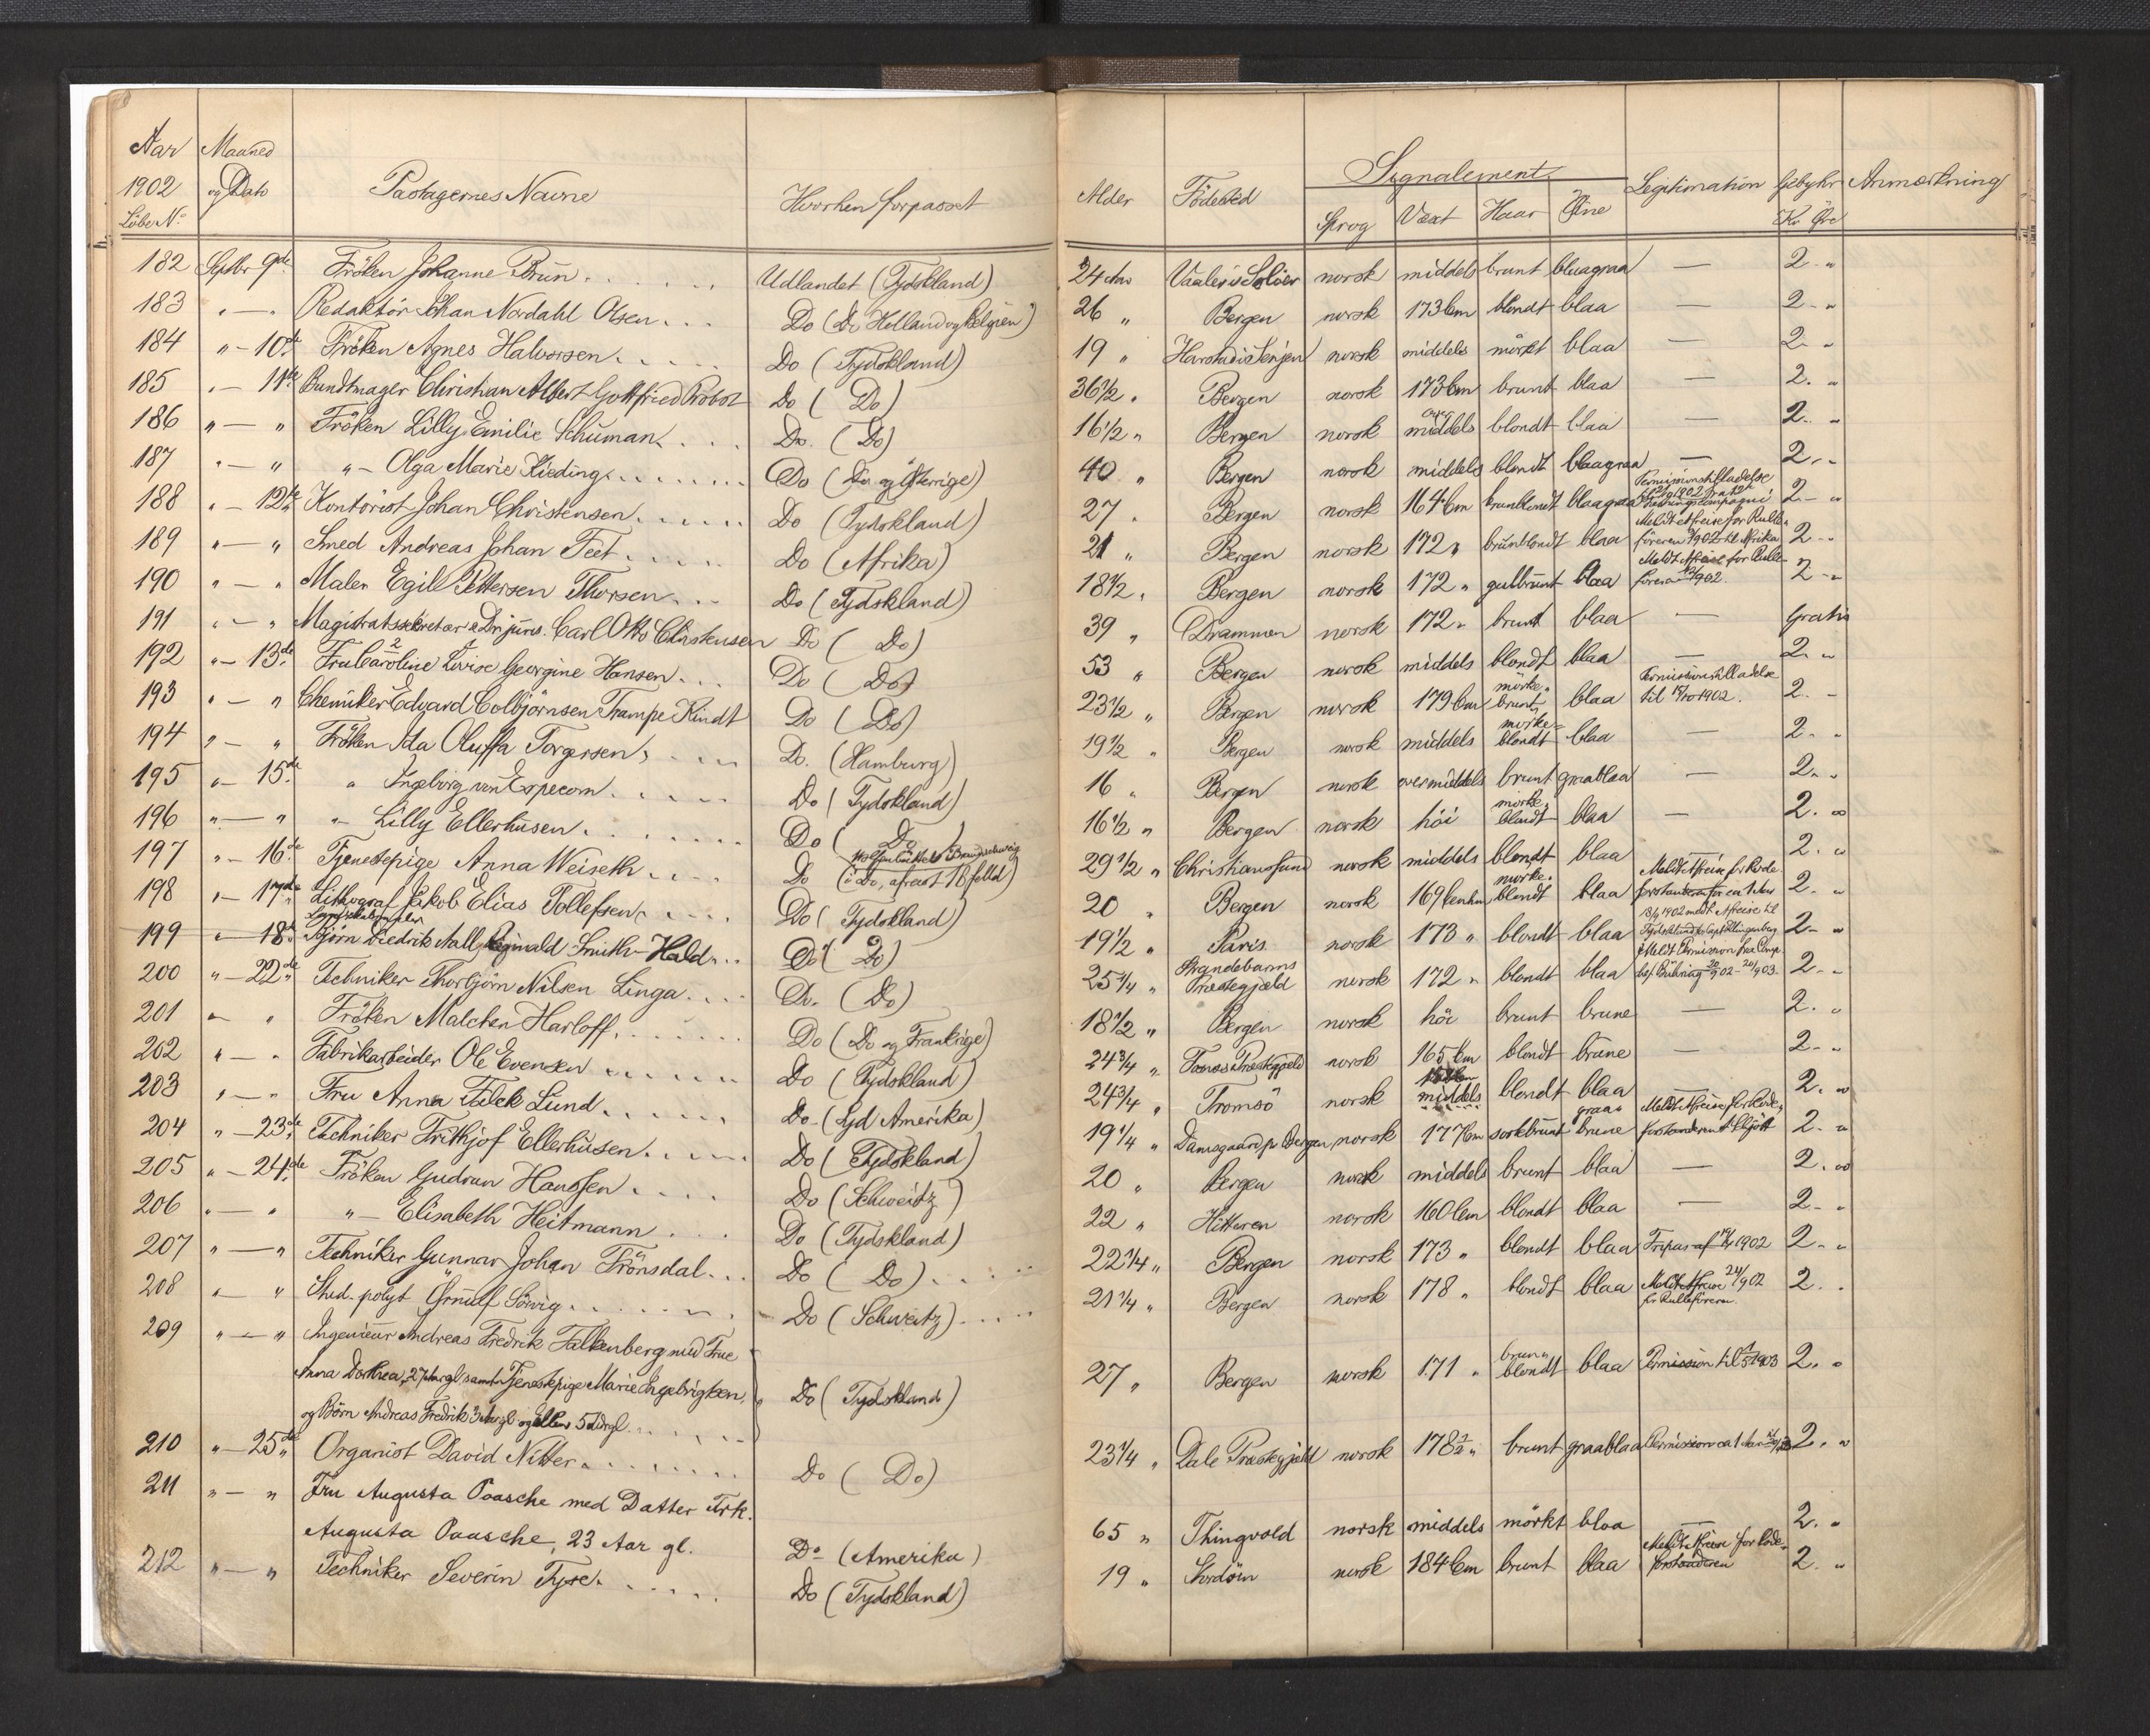 Aar Maaned
1902 og Dato Pastagernes Navne Hvorhen forpasset Alder Födested Signalement Legitimation Gebyhr Anmærkning
Löbe No Sprog Væxt Haar Öine Kr Öre
182 Septbr 9de Fröken Johanne Brun Udlandet (Tydskland) 24 Aar Vaaler i Solöer norsk middels brunt blaagraa — 2 "
183 " — " Redaktör Johan Nordahl Olsen Do (Do Holland og Belgien) 26 " Bergen norsk 173 Cm blondt blaa — 2 "
184 " — 10de Fröken Agnes Halvorsen Do (Tydskland) 19 " Harstad i Senjen norsk middels mörkt blaa — 2 "
185 " — 11te Bundtmager Christian Albert Gottfried Probst Do ( Do ) 36 1/2 " Bergen norsk 173 Cm brunt blaa — 2 "
186 " — " Fröken Lilly Emilie Schuman Do. ( Do ) 16 1/2 " Bergen norsk over middels blondt blaa — 2 "
187 " — " " — Olga Marie Kieding Do (Do og Österrige) 40 " Bergen norsk middels blondt blaagraa — 2 "
188 " — 12te Kontorist Johan Christensen Do (Tydskland) 27 " Bergen norsk 164 Cm brunblondt blaagraa Permissionstilladelse 2 "
189 " — " Smed Andreas Johan Feet Do (Afrika) 21 " Bergen norsk 172 " brunblondt blaa Meldt Afreise for Rulleföreren /902 til Afrika 2 "
190 " — " Maler Egill Pettersen Thorsen Do (Tydskland) 18 1/2 " Bergen norsk 172 " gulbrunt blaa Meldt Afreise for Rulleföreren 12/9 902. 2 "
191 " — " Magistratssekretær Carl Otto Christensen Do ( Do ) 39 " Drammen norsk 172 " brunt blaa — Gratis
192 " — 13de Fru Caroline Lovise Georgine Hansen Do ( Do ) 53 " Bergen norsk middels blondt blaa — 2 "
193 " — " Chemiker Edvard Colbjörnsen Trampe Kindt Do ( Do ) 23 1/2 " Bergen norsk 179 Cm mörkebrunt blaa Permissionstilladelse til 15/10 1902. 2 "
194 " — " Fröken Ida Oluffa Torgersen Do. (Hamburg) 19 1/2 " Bergen norsk middels mörkeblondt blaa — 2 "
195 " — 15de " Ingeborg von Erpecom Do (Tydskland) 16 " Bergen norsk over middels brunt graablaa — 2 "
196 " — " " — Lilly Ellerhusen Do ( Do ) 16 1/2 " Bergen norsk höi mörkeblondt blaa — 2 "
197 " — 16de Tjenestepige Anna Weiseth Do (i Do, Wolfenbüttel Braunschweig) 29 1/2 " Christiansund norsk middels blondt blaa — 2 "
198 " — 17de Lithograf Jakob Elias Tollefsen Do (Tydskland) 20 " Bergen norsk 169 Cm mörkeblondt blaa Meldt Afreise for Rodeforstanderen for ca 1 Aar 2 "
199 " — 18de Björn Diedrik Aall Reginald Smith-Hald Do ( Do ) 19 1/2 " Paris norsk 173 " blondt blaa 13/9 1902 meldt Afreise til Tydskland 2 "
200 " — 22de Techniker Thorbjörn Nilsen Linga Do. ( Do ) 25 1/4 " Strandebarms Præstegjæld norsk 172 " blondt blaa Meldt Permission 2 "
201 " — " Fröken Malchen Harloff Do (Do og Frankrige) 18 1/2 " Bergen norsk höi brunt brune — 2 "
202 " — " Fabrikarbeider Ole Evensen Do (Tydskland) 24 3/4 " Præstegjæld norsk 165 Cm blondt brune — 2 "
203 " — " Fru Anna Falck Lund Do (Syd Amerika) 24 3/4 " Tromsö norsk middels blondt blaa — 2 "
204 " — 23de Techniker Frithjof Ellerhusen Do (Tydskland) 19 1/4 " Damsgaard pr Bergen norsk 177 Cm sortbrunt graabrune Meldt Afreise for Rodeforstanderen 2 "
205 " — 24de Fröken Gudrun Hanssen Do (Schweitz) 20 " Bergen norsk middels brunt blaa — 2 "
206 " — " " — Elisabeth Heitmann Do (Tydskland) 22 " Hitteren norsk 160 Cm blondt blaa — 2 "
207 " — " Techniker Gunnar Johan Frönsdal Do ( Do ) 22 1/4 " Bergen norsk 173 " blondt blaa Fripas af 1902 2 "
208 " — " Stud. polyt Örnulf Sörvig Do (Schweitz) 21 1/4 " Bergen norsk 178 " blondt blaa Meldt Afreise 24/9 02 for Rulleföreren. 2 "
209 " — " Ingeniör Andreas Fredrik Falkenberg med Frue
Anna Dorthea, 27 Aar gl samt Tjenestepige Marie Engebrigtsen, Do (Tydskland) 27 " Bergen norsk 171 " brunblondt blaa Permission til 1903 2 "
og Börn Andreas Fredrik 3 Aar gl og Ellen 5 Aar gl
210 " — 25de Organist David Nitter Do ( Do ) 23 1/4 " Dale Præstegjæld norsk 178 1/2 " brunt graablaa Permission ca 1 Aar 2 "
211 " — " Fru Augusta Paasche med Datter Frk.
Augusta Paasche, 23 Aar gl. Do (Amerika) 65 " Thingvold norsk middels mörkt blaa — 2 "
212 " — " Techniker Severin Tyse Do (Tydskland) 19 " Stordöen norsk 184 Cm brunt blaa Meldt Afreise for Rodeforstanderen 2 "